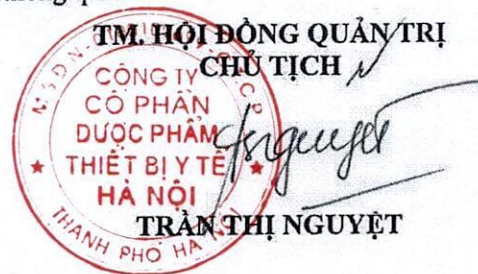 TM. HỘI ĐỒNG QUẢN TRỊ
CHỦ TỊCH
CÔNG TY
CỔ PHẦN
DƯỢC PHẨM
THIẾT BỊ Y TẾ
HÀ NỘI
THÀNH PHỐ HÀ NỘI
Nguyệt
TRẦN THỊ NGUYỆT